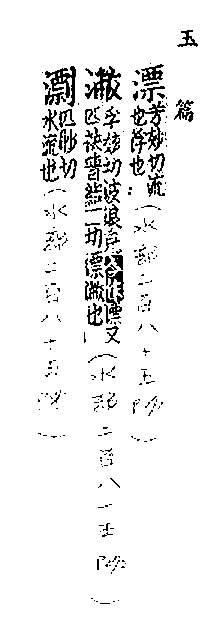 玉篇
漂 芳妙切流也浮也:(水部二百八十五
潎 孚 切波浪 漂又匹袂普結二切漂潎也(水部二百八十五
匹妙切水流也(水部二百八十五